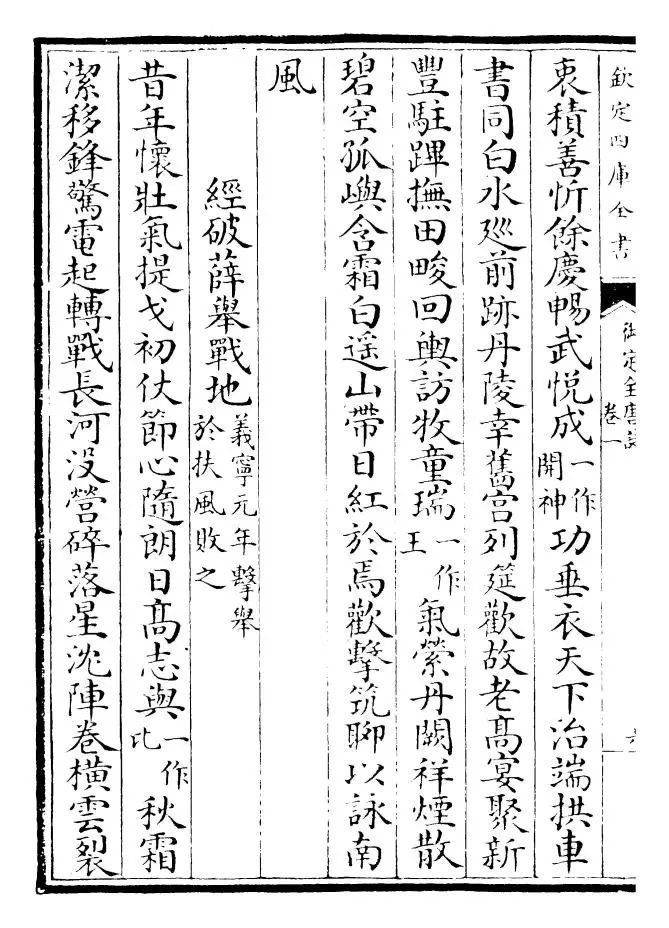 欽定四庫全書
御定全唐詩
卷一
衷積善忻餘慶暢武悅成一作開神功垂衣天下治端拱車
書同白水廵前跡丹陵幸舊宮列筵歡故老高宴聚新
豐駐蹕撫田畯回輿訪牧童瑞一作王氣縈丹闕祥煙散
碧空孤嶼含霜白遥山帶日紅於焉歡擊筑聊以詠南
風
經破薛舉戰地義寧元年擊舉於扶風敗之
昔年懷壯氣提戈初仗節心隨朗日高志與一作比秋霜
潔移鋒驚電起轉戰長河決營碎落星沈陣卷橫雲裂